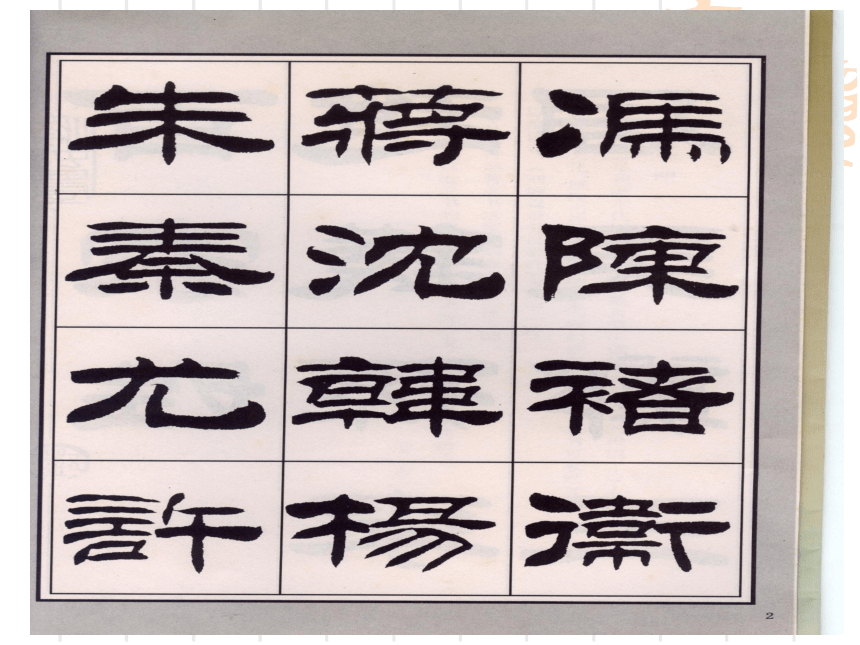 馮陳褚衛
蔣沈韓楊
朱秦尤許
2